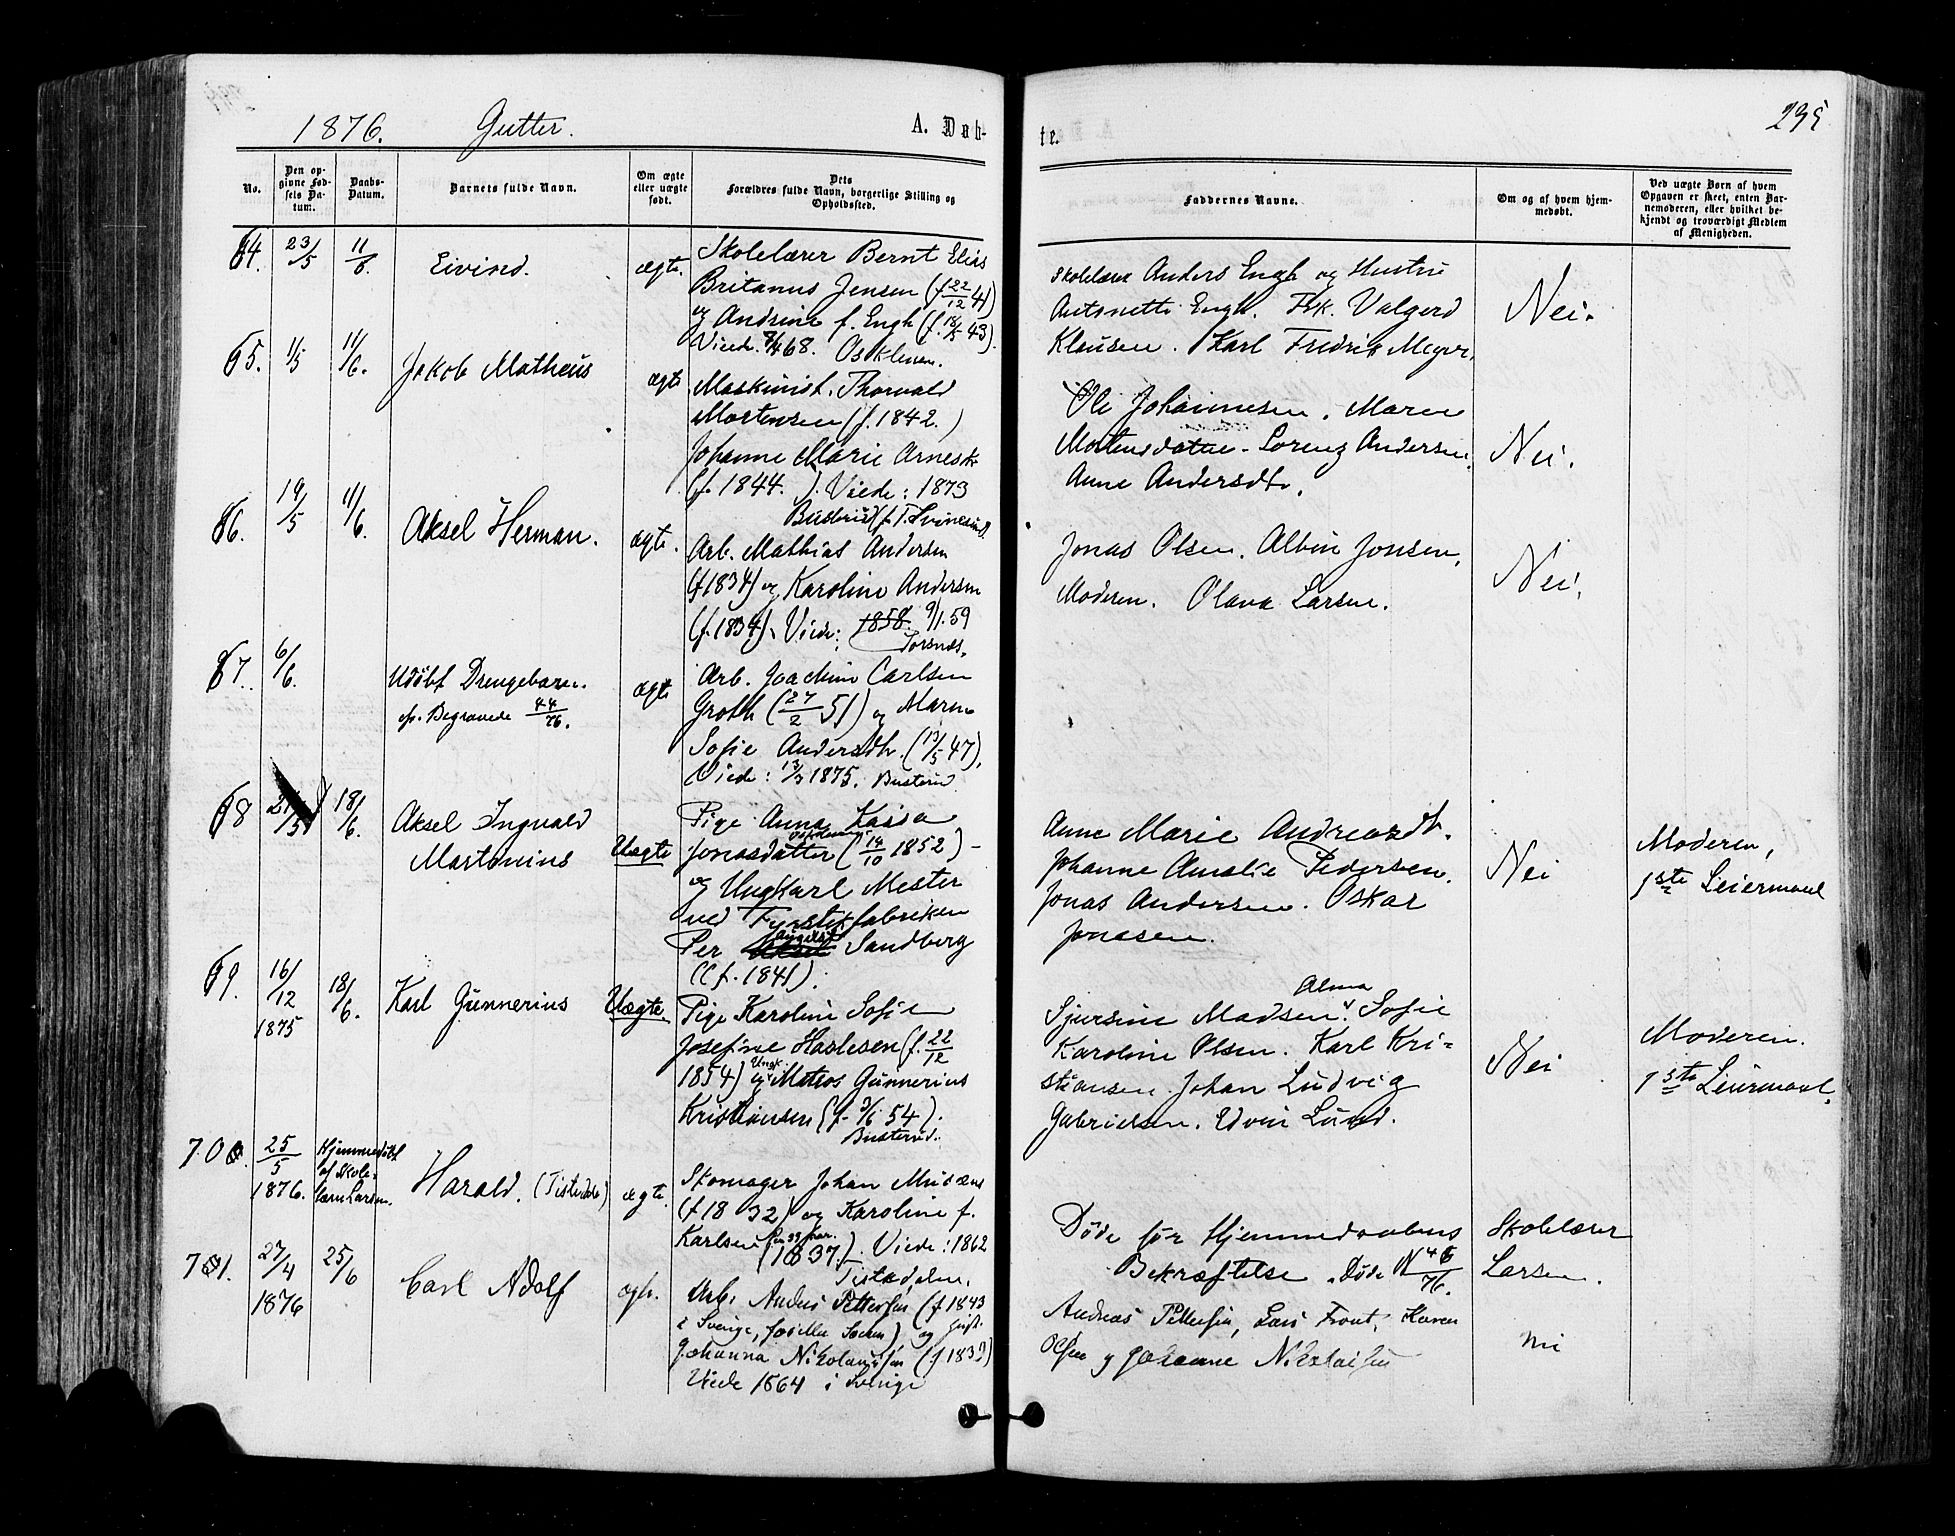 1876. Gutter. A. Døb-
te. 235
No.
Den op-
givne Fød-
sels Da-
tum.
Daabs-
Datum.
Barnets fulde Navn.
Om ægte
eller uægte
født.
Dets
Forældres fulde Navn, borgerlige Stilling og
Opholdssted.
Faddernes Navne.
Om og af hvem hjem-
medøbt.
Ved uægte Børn af hvem
Opgaven er skeet, enten Bar-
nemoderen, eller hvilket be-
kjendt og troværdigt Medlem
af Menigheden.
64. 23/5 11/6. Eivind. ægte.
Skolelærer Bernt Elias
Britanus Jensen (f 22/12 41)
og Andrine f. Engh (f. 18/5 43).
Viede 68.
Skolelærer Anders Engh og Hustru
Antonette Engh. Frk. Valgerd
Klausen. Karl Fredrik Meyer.
Nei.
65. 1/5 11/6. Jakob Matheus ægte
Maskinist. Thorvald
Mortensen (f. 1842.)
Johanne Marie Arnesdt.
(f. 1844. ). Viede: 1873
Busterud (f. T. Svinesund)
Ole Johannesen. Maren
Mortensdatter - Lorenz Andersen.
Anne Andersdt.
Nei.
66. 19/5 11/6. Aksel Herman. ægte.
Arb. Mathias Andersen
(f 1834) og Karoline Andersen
(f. 1834). Viede: 1858. 9/1.59
Torsnæs.
Jonas Olsen. Albin Jonsen.
Moderen. Olava Larsen.
Nei.
67. 6/6. Udøbt Drengebarn.
cfr. Begravede 44/76. ægte
Arb. Joachim Carlsen
Groth (27/2 51) og Maren
Sofie Andersdtr. (13/5 47),
Viede: 13/3 1875. Busterud.
68 21/5 18/6. Aksel Ingvald
Martonius Uægte
Pige Anna Kaisa
Jonasdatter (14/10 1852) -
og Ungkarl Mester
ved Fyrstikfabriken
Per Sandberg
(f. 1841).
Anne Marie Andreasdt.
Johanne Amalie Pedersen.
Jonas Andersen. Oskar
Jonasen.
Nei
Moderen,
1ste Leiermaal
69. 16/12 1875 18/6. Karl Gunnerius Uægte.
Pige Karoline Sofie
Josefine Haslesen (f. 22/12
1854) og Ungk. Matros Gunnerius
Kristiansen (f. 3/6 54).
Busterud.
Sjursine Madsen. Alma Sofie
Karoline Olsen. Karl Kri-
stiansen. Johan Ludvig
Gabrielsen. Edvin Lund.
Nei
Moderen.
1ste Leiermaal.
70. 25/5 1876. Hjemmedøbt
af Skole-
lærer Larsen. Harald. (Tistedalen) ægte.
Skomager Johan Musæus
(f 1832) og Karoline f.
Karlsen (1837). Viede: 1862
Tistedalen.
Døde før Hjemmedaabens
Bekræftelse. Døde N 46/76.
Skolelærer
Larsen.
71. 27/4 1876 25/6 Carl Adolf ægte.
Arb. Anders Pettersen (f 1843
i Sverige, Socken) og
Johanna Nikolaisen (f 1839)
Viede 1864 i Sverige
Andreas Pettersen, Lars Front, Karen
Olsen og Johanne Nikolaisen
nei